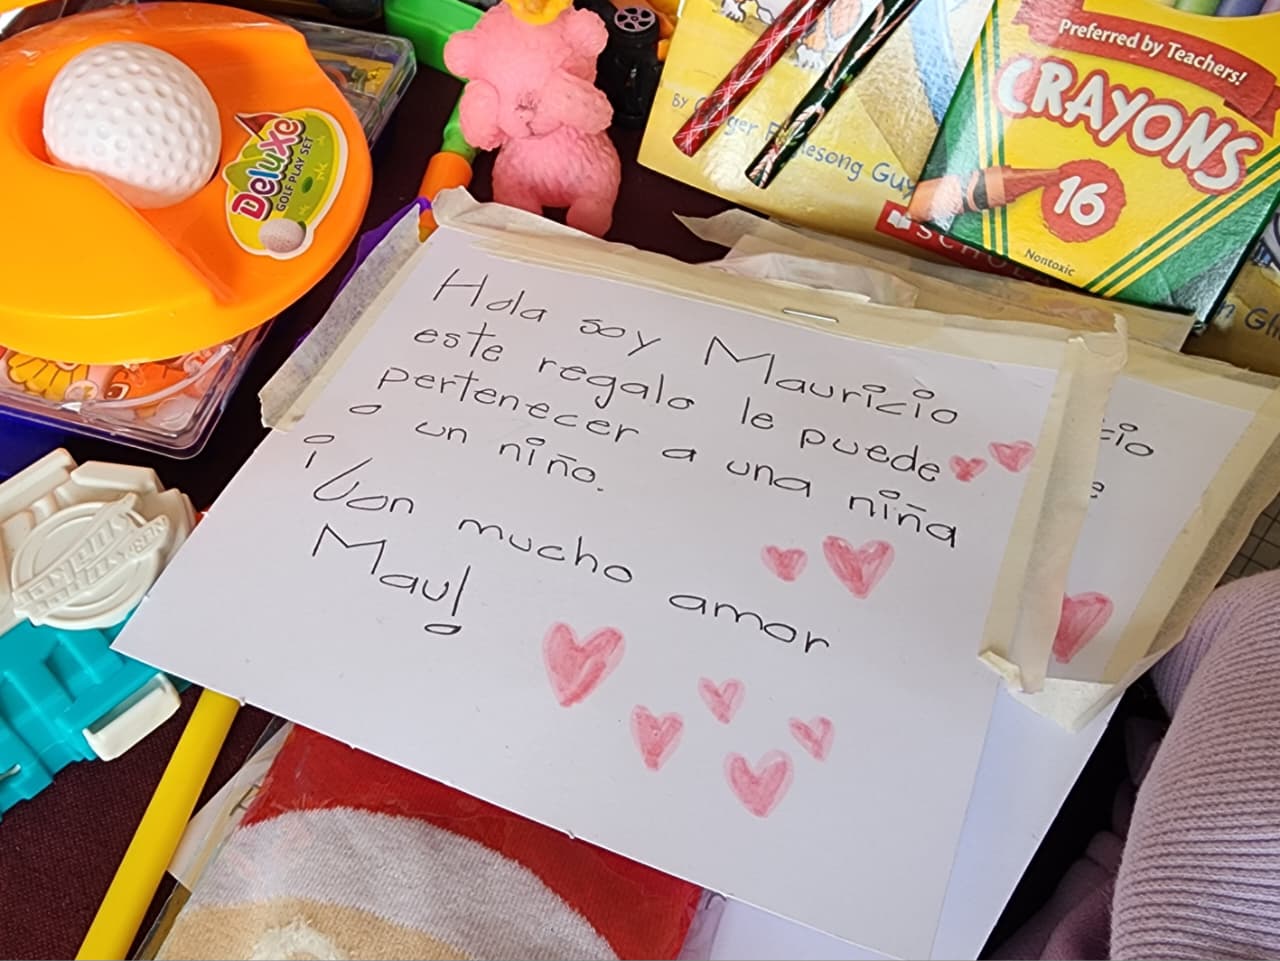 Deluxe
GOLF PLAY SET
BY
Preferred by Teachers!
CRAYONS
16
Nontoxic
Hola soy Mauricio
este regalo le puede
pertenecer a una niña
o un niño.
¡Con mucho amor
Mau!
cio
e